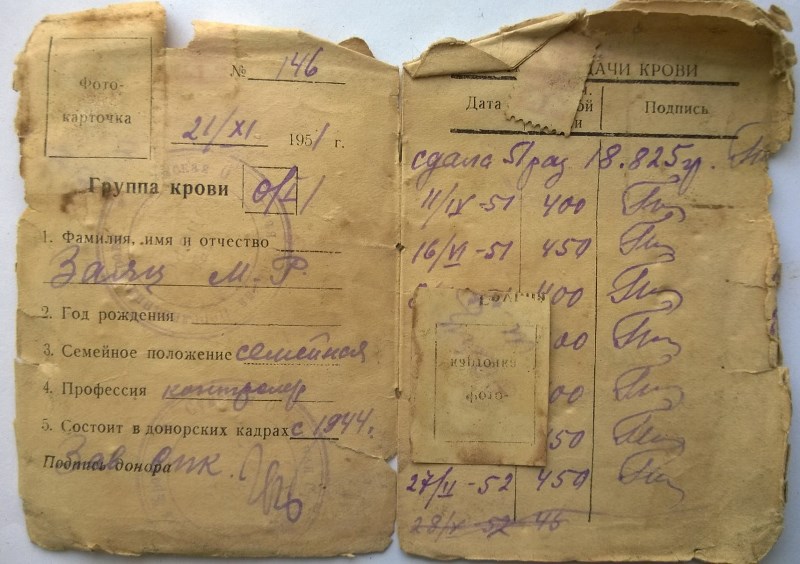 Фото-
карточка
№ 146
21/XI 1951 г.
Группа крови 0/I/
1. Фамилия, имя и отчество
Заяц М. Г.
2. Год рождения
3. Семейное положение семейная
4. Профессия контролер
5. Состоит в донорских кадрах с 1944 г.
Подпись донора
Зав ОПК.
ДАЧИ КРОВИ
Дата
Подпись
сдала 51 раз 18.825 гр.
11/IX-51 400
16/VI-51 450
400
00
00
50
27/II-52 450
28/V-52 45
карточка
Фото-